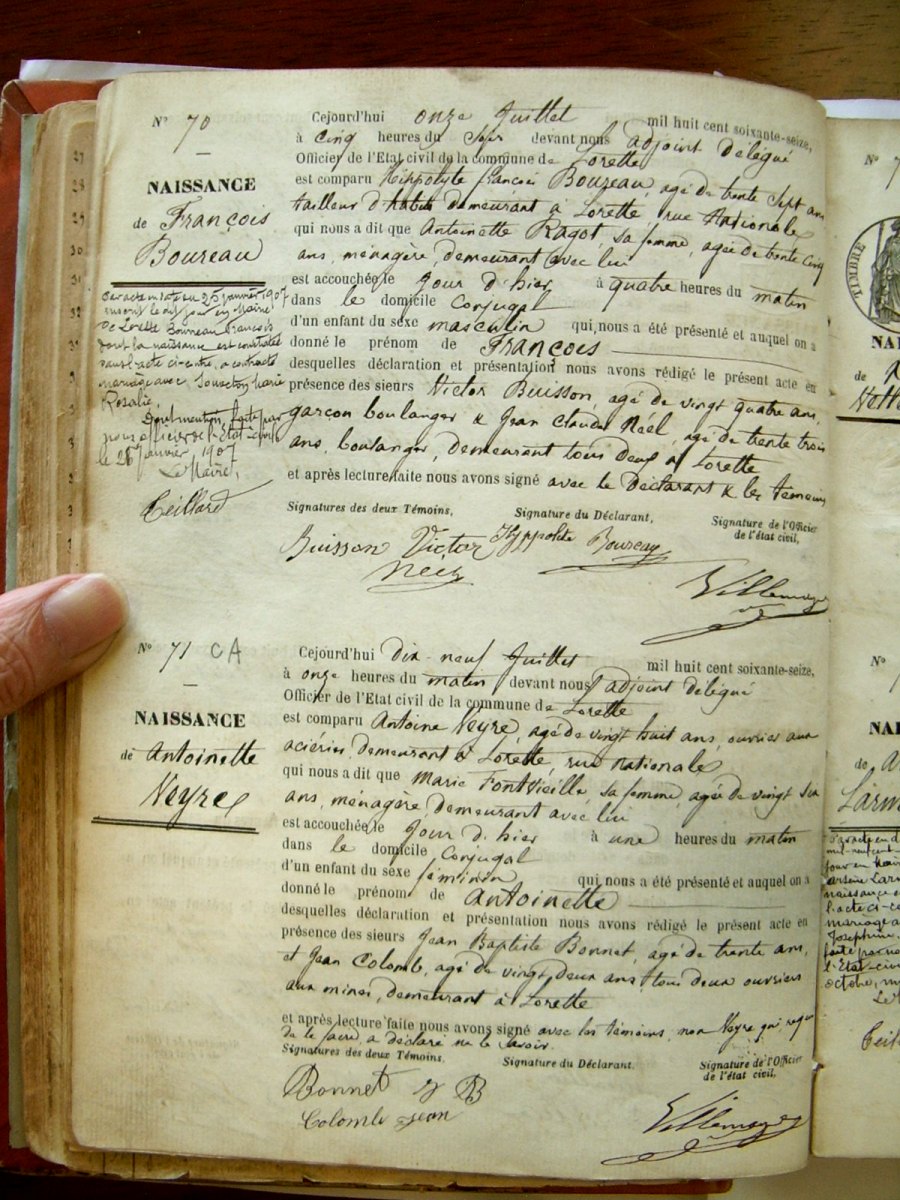 Nº 70
NAISSANCE
de François
Boureau
Par acte en date du 25 janvier 1907
inscrit le dit jour en Mairie
de Lorette Boureau François
dont la naissance est constatée
dans l'acte ci-contre, a contracté
mariage avec Marie
Rosalie.
Dont mention faite par
nous officier de l'Etat-civil
le 26 Janvier 1907
Le Maire,
Teillard
Cejourd'hui onze Juillet mil huit cent soixante-seize,
à Cinq heures du Soir devant nous adjoint délégué
Officier de l'Etat civil de la commune de Lorette
est comparu Hippolyte françois Boureau, agé de trente Sept ans
tailleur d'habits demeurant à Lorette, rue Nationale
qui nous a dit que Antoinette Ragot, sa femme, agée de trente Cinq
ans, ménagère, demeurant avec lui
est accouchée, le Jour d'hier à quatre heures du matin
dans le domicile Conjugal
d'un enfant du sexe masculin qui nous a été présenté et auquel on a
donné le prénom de François
desquelles déclaration et présentation nous avons rédigé le présent acte en
présence des sieurs Victor Buisson, agé de vingt quatre ans,
garçon boulanger & Jean Claude Néel, agé de trente trois
ans, boulanger, demeurant tous deux à Lorette
et après lecture faite nous avons signé avec le Déclarant & les témoins
Signatures des deux Témoins, Signature du Déclarant, Signature de l'Officier
de l'état civil,
Buisson Victor Hyppolite Boureau
Neel
Villemagne
Nº 71 CA
NAISSANCE
de Antoinette
Neyre
Cejourd'hui dix-neuf Juillet mil huit cent soixante-seize,
à onze heures du matin devant nous adjoint délégué
Officier de l'Etat civil de la commune de Lorette
est comparu Antoine Neyre, agé de vingt huit ans, ouvrier aux
aciéries, demeurant à Lorette, rue nationale
qui nous a dit que Marie Fontvieille, sa femme, agée de vingt six
ans, ménagère, demeurant avec lui
est accouchée, le Jour d'hier à une heures du matin
dans le domicile Conjugal
d'un enfant du sexe féminin qui nous a été présenté et auquel on a
donné le prénom de Antoinette
desquelles déclaration et présentation nous avons rédigé le présent acte en
présence des sieurs Jean Baptiste Bonnet, agé de trente ans,
et Jean Colomb, agé de vingt deux ans, tous deux ouvriers
aux mines, demeurant à Lorette
et après lecture faite nous avons signé avec les témoins, non Neyre qui requis
de le faire, a déclaré ne le savoir.
Signatures des deux Témoins, Signature du Déclarant, Signature de l'Officier
de l'état civil,
Bonnet J B
Colomb Jean
Villemagne
Nº 7
TIMBRE
NAI
de
Nº
NAI
de
Larm
27
28
29
30
31
32